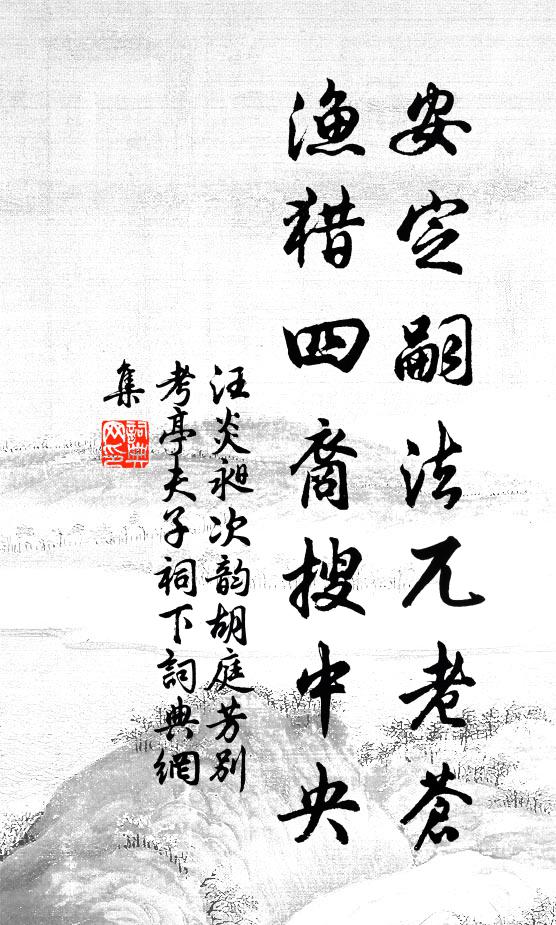 安定嗣法兀老蒼
渔猎四裔搜中央
汪炎昶次韵胡庭芳別
考亭夫子祠下詞典網
集